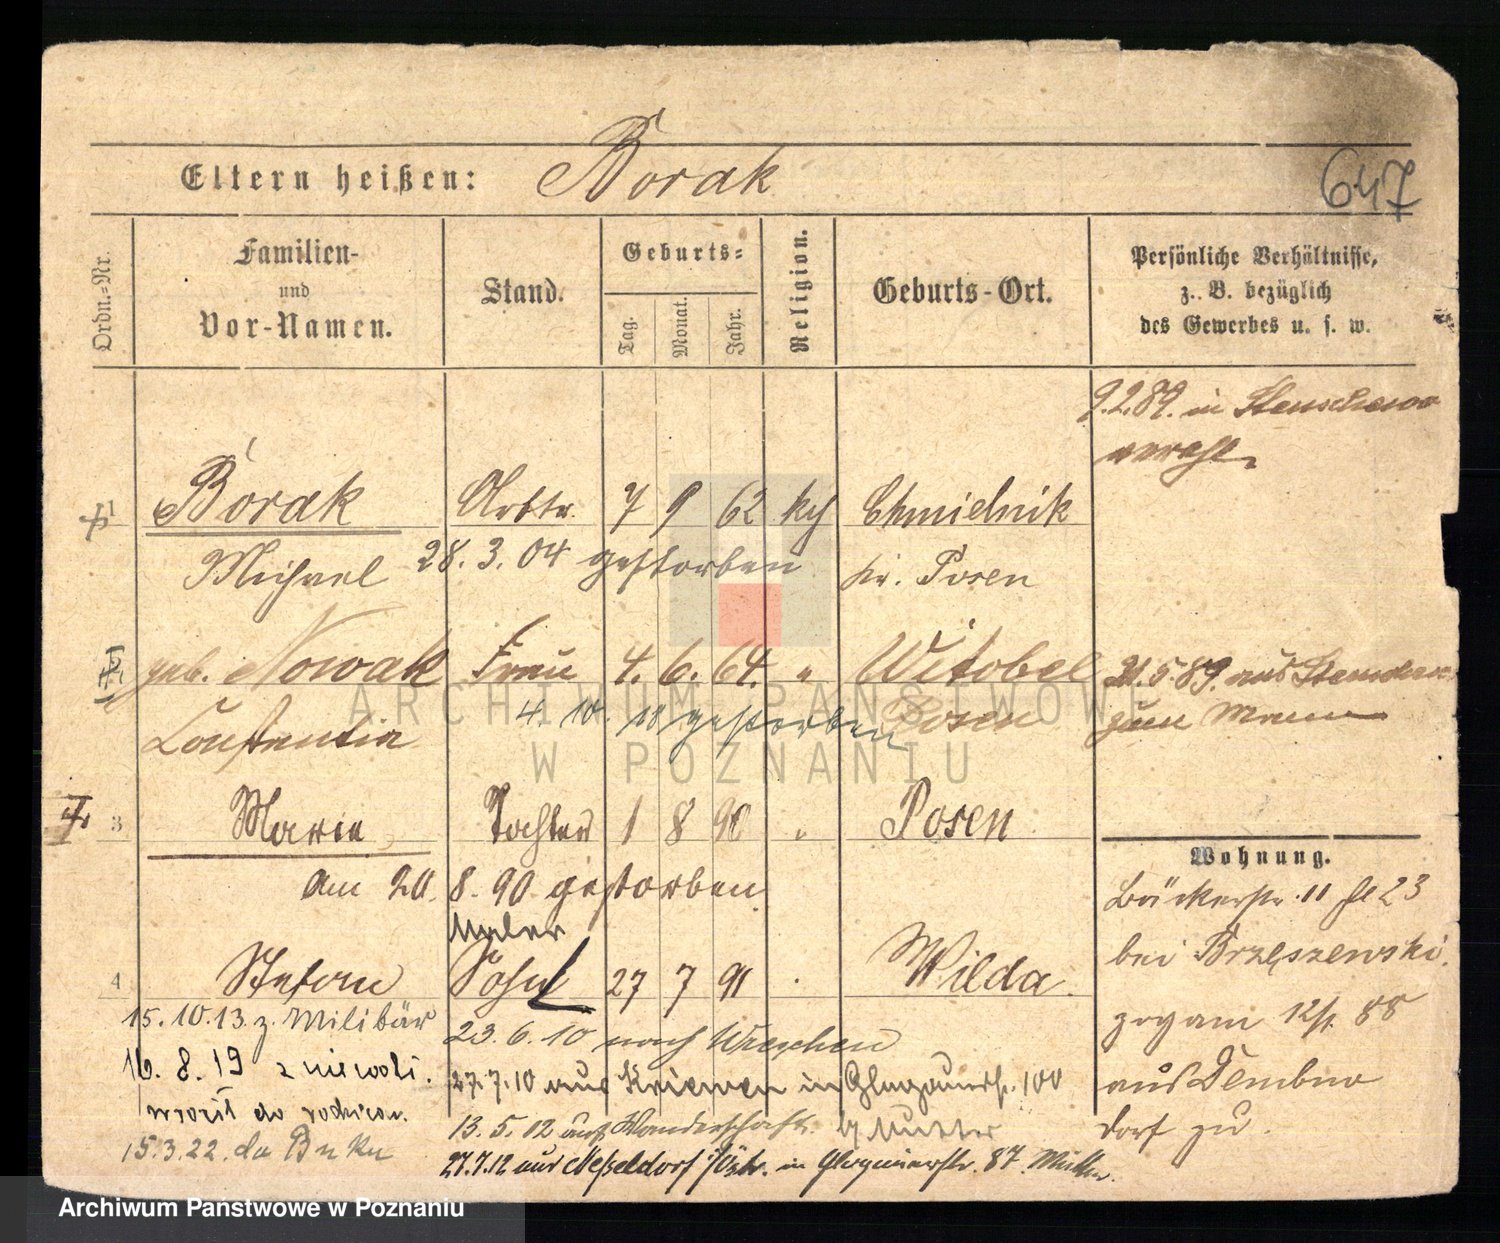 Eltern heißen: Borak
647
Ordn.-Nr.
Familien-
und
Vor-Namen.
Stand.
Geburts-
Tag.
Monat.
Jahr.
Religion.
Geburts-Ort.
Persönliche Verhältnisse,
z. B. bezüglich
des Gewerbes u. s. w.
9.2.89. in Stenschewo
1 Borak Arbtr. 7 9 62 kth Chmielnik
Michael 28. 3. 04 gestorben kr. Posen
geb. Nowak Frau 4. 6. 64. " Witobel
21.5.89. aus
Constantia 4. 10. 18 gestorben Posen
zum Manne
3 Marie Tochter 1 8 90 " Posen
am 20. 8. 90 gestorben
Wohnung.
Bäckerstr. 11 23
bei Brzeszewski.
zog am 88
aus Dembno
dorf zu.
Maler
4 Stefan Sohn 27 7 91 Wilda
15. 10. 13. z. Militär
23. 6. 10 nach Wreschen
16. 8. 19 z niewoli
27. 7. 10 aus Kriewen in Glogauerstr. 100
wrócił do rodziców.
b/ Mutter
13. 5. 12 auf Wanderschaft.
15.3.22. do Buku
27.7.12 aus Nesseldorf i/Östr. in Glogauerstr. 87. Mutter.
ARCHIWUM PAŃSTWOWE
W POZNANIU
Archiwum Państwowe w Poznaniu